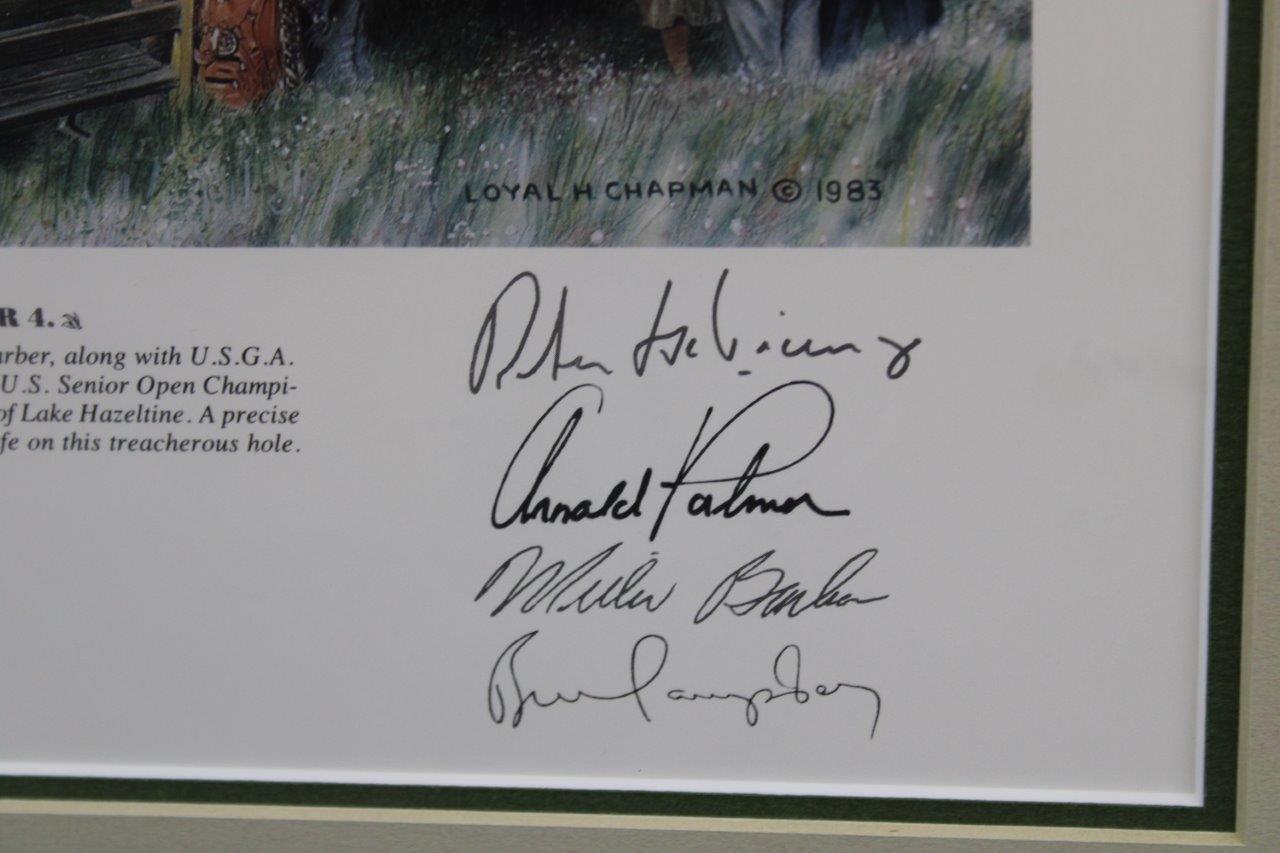 LOYAL H. CHAPMAN © 1983
R 4.
rber, along with U.S.G.A.
U.S. Senior Open Champi-
of Lake Hazeltine. A precise
fe on this treacherous hole.
Arnold Palmer
Miller Barber
Bill Campbell